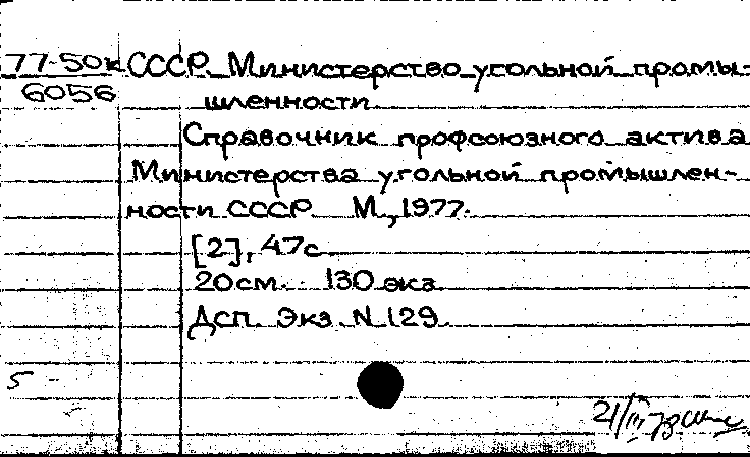 77-50к СССР. Министерство угольной промы-
6056 шленности
Справочник профсоюзного актива
Министерства угольной промышлен-
ности СССР. М., 1977.
[2], 47с.
20см. 130 экз.
Дсп. Экз. N 129.
5
21/III